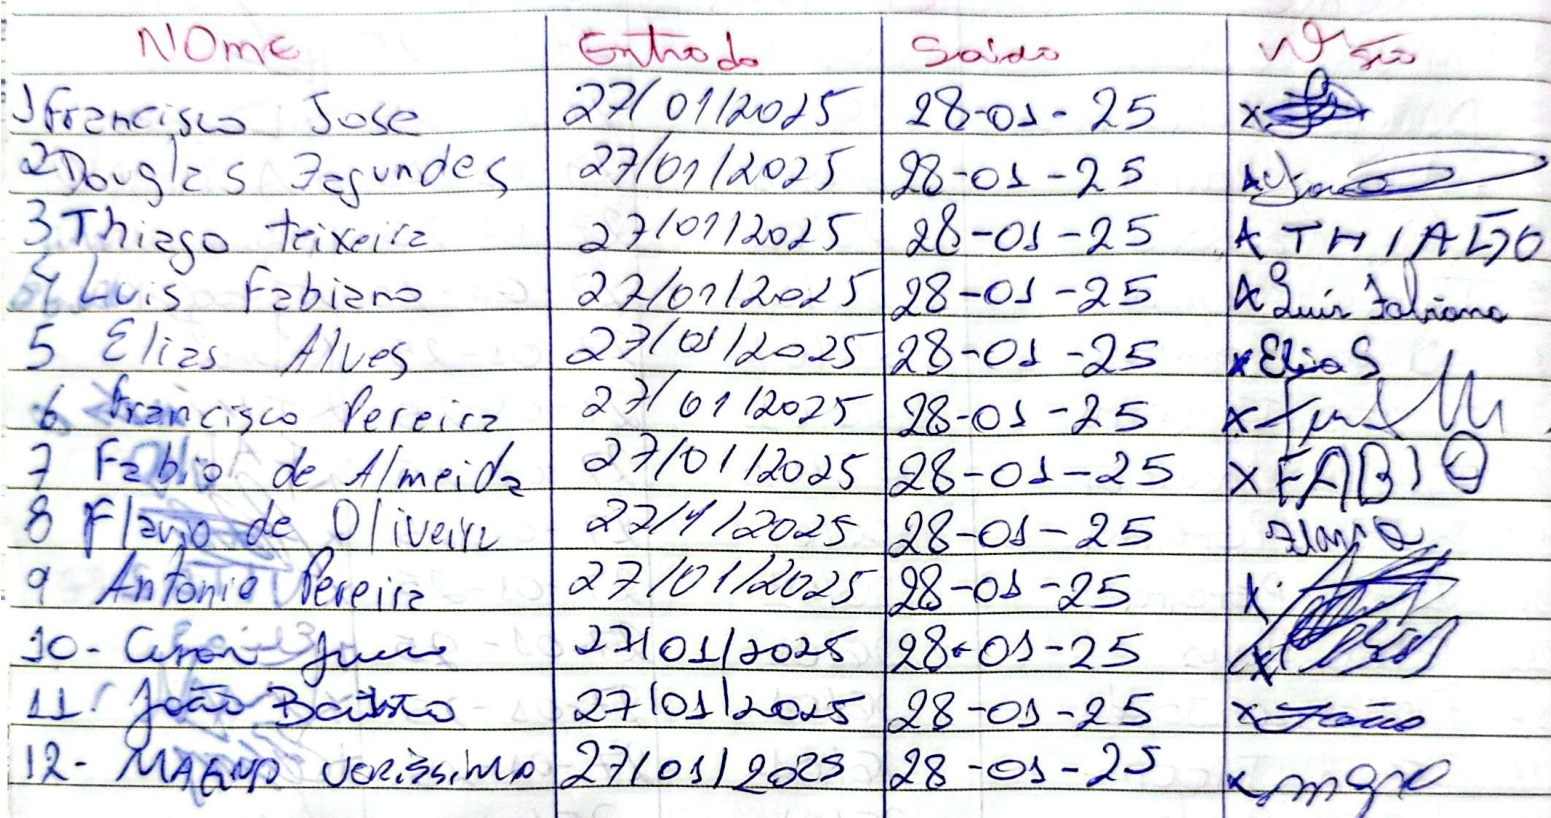 Nome Entrada Saida
1 Francisco Jose 27/01/2025 28-01-25 x
2 Douglas Fagundes 27/01/2025 28-01-25 x
3 Thiago teixeira 27/01/2025 28-01-25 x THIAGO
4 Luis Fabiano 27/01/2025 28-01-25 x Luis Fabiano
5 Elias Alves 27/01/2025 28-01-25 x Elias
6 Francisco Pereira 27/01/2025 28-01-25 x
7 Fabio de Almeida 27/01/2025 28-01-25 x FABIO
8 Flavio de Oliveira 27/1/2025 28-01-25 Flavio
9 Antonio Pereira 27/01/2025 28-01-25 x
10- 27/01/2025 28-01-25 x
11 João Batista 27/01/2025 28-01-25 x João
12- Verissimo 27/01/2025 28-01-25 x